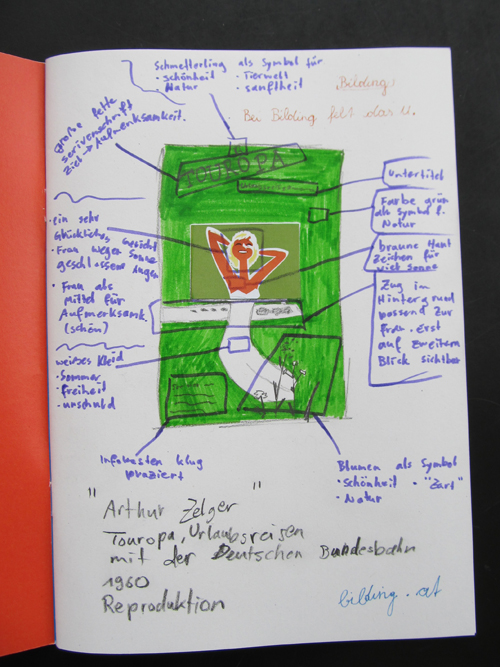 Schmetterling als Symbol für
• schönheit • Tierwelt
Natur • sanftheit
Bilding!
Bei Bilding felt das u.
große fette
serivenschrift
Ziel → Aufmerksamkeit.
TOUROPA
untertitel
Farbe grün
als Symbol f.
Natur
braune Haut
Zeichen für
viel Sonne
Zug im
Hintergrund
passend zur
Frau. erst
auf zweitem
Blick sichtbar
• ein sehr
Glückliches Gesicht
• Frau wegen Sonne
geschlossene Augen
• Frau als
Mittel für
Aufmerksamk.
(schön)
weißes Kleid
• Sommer
• freiheit
• unschuld
Infokasten klug
plaziert
Blumen als Symbol
• Schönheit • "Zart"
• Natur
" Arthur Zelger "
Touropa, Urlaubsreisen
mit der Deutschen Bundesbahn
1960
Reproduktion
bilding.at